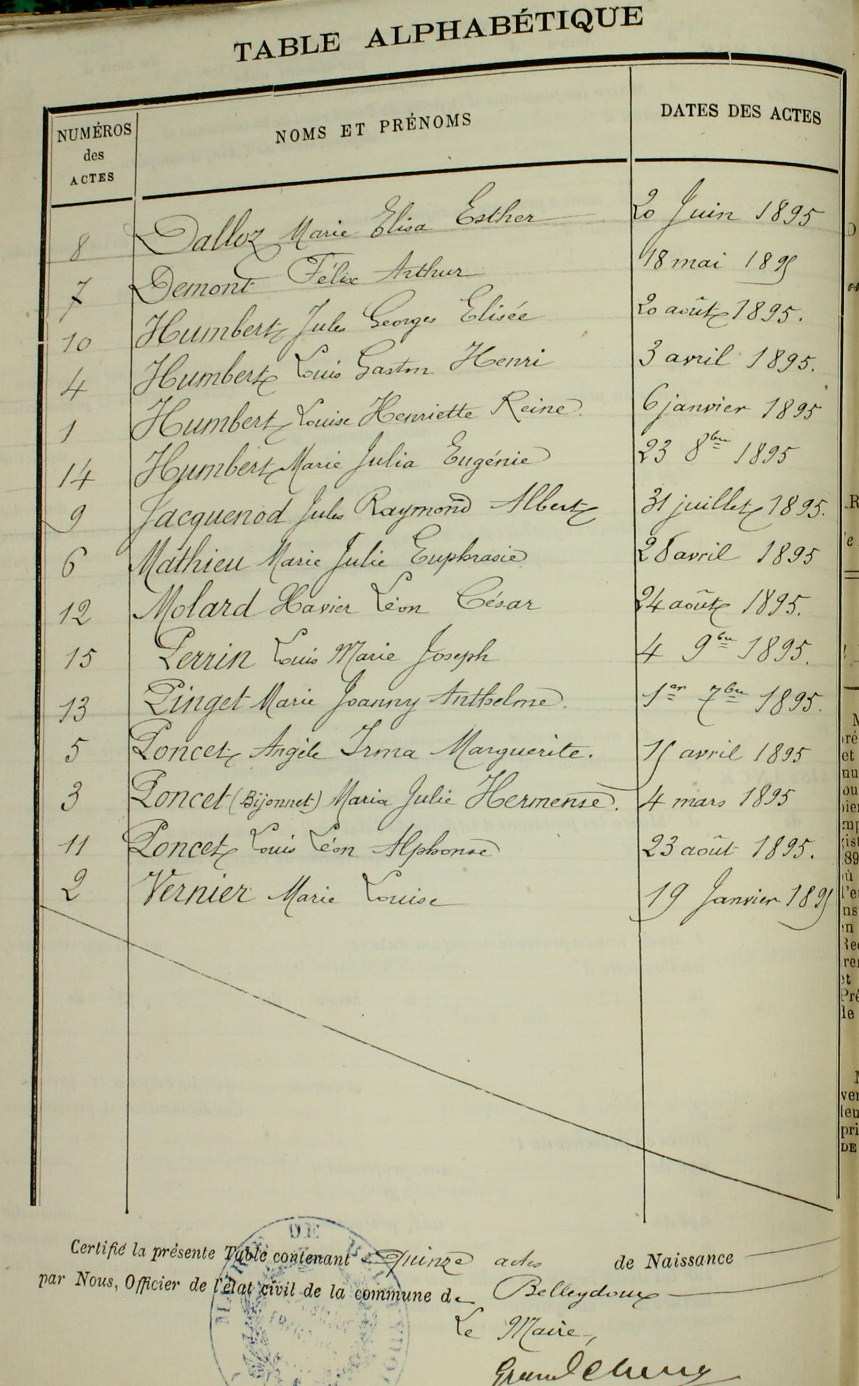 TABLE ALPHABÉTIQUE
NUMÉROS des ACTES NOMS ET PRÉNOMS DATES DES ACTES
8 Dalloz Marie Elisa Esther 20 Juin 1895
7 Demont Félix Arthur 18 mai 1895
10 Humbert Jules Georges Elisée 20 août 1895.
4 Humbert Louis Gaston Henri 3 avril 1895.
1 Humbert Louise Henriette Reine 6 janvier 1895
14 Humbert Marie Julia Eugénie 23 8bre 1895
9 Jacquenod Jules Raymond Albert 31 juillet 1895.
6 Mathieu Marie Julie Euphrasie 28 avril 1895
12 Molard Xavier Léon César 24 août 1895.
15 Perrin Louis Marie Joseph 4 9bre 1895.
13 Pinget Marie Joanny Anthelme. 1er 7bre 1895.
5 Poncet Angèle Irma Marguerite. 15 avril 1895
3 Poncet (Bijonnet) Maria Julie Hermense. 4 mars 1895
11 Poncet Louis Léon Alphonse 23 août 1895.
2 Vernier Marie Louise 19 Janvier 1895
Certifié la présente Table contenant Quinze actes de Naissance
par Nous, Officier de l'état civil de la commune de Belleydoux
Le Maire,